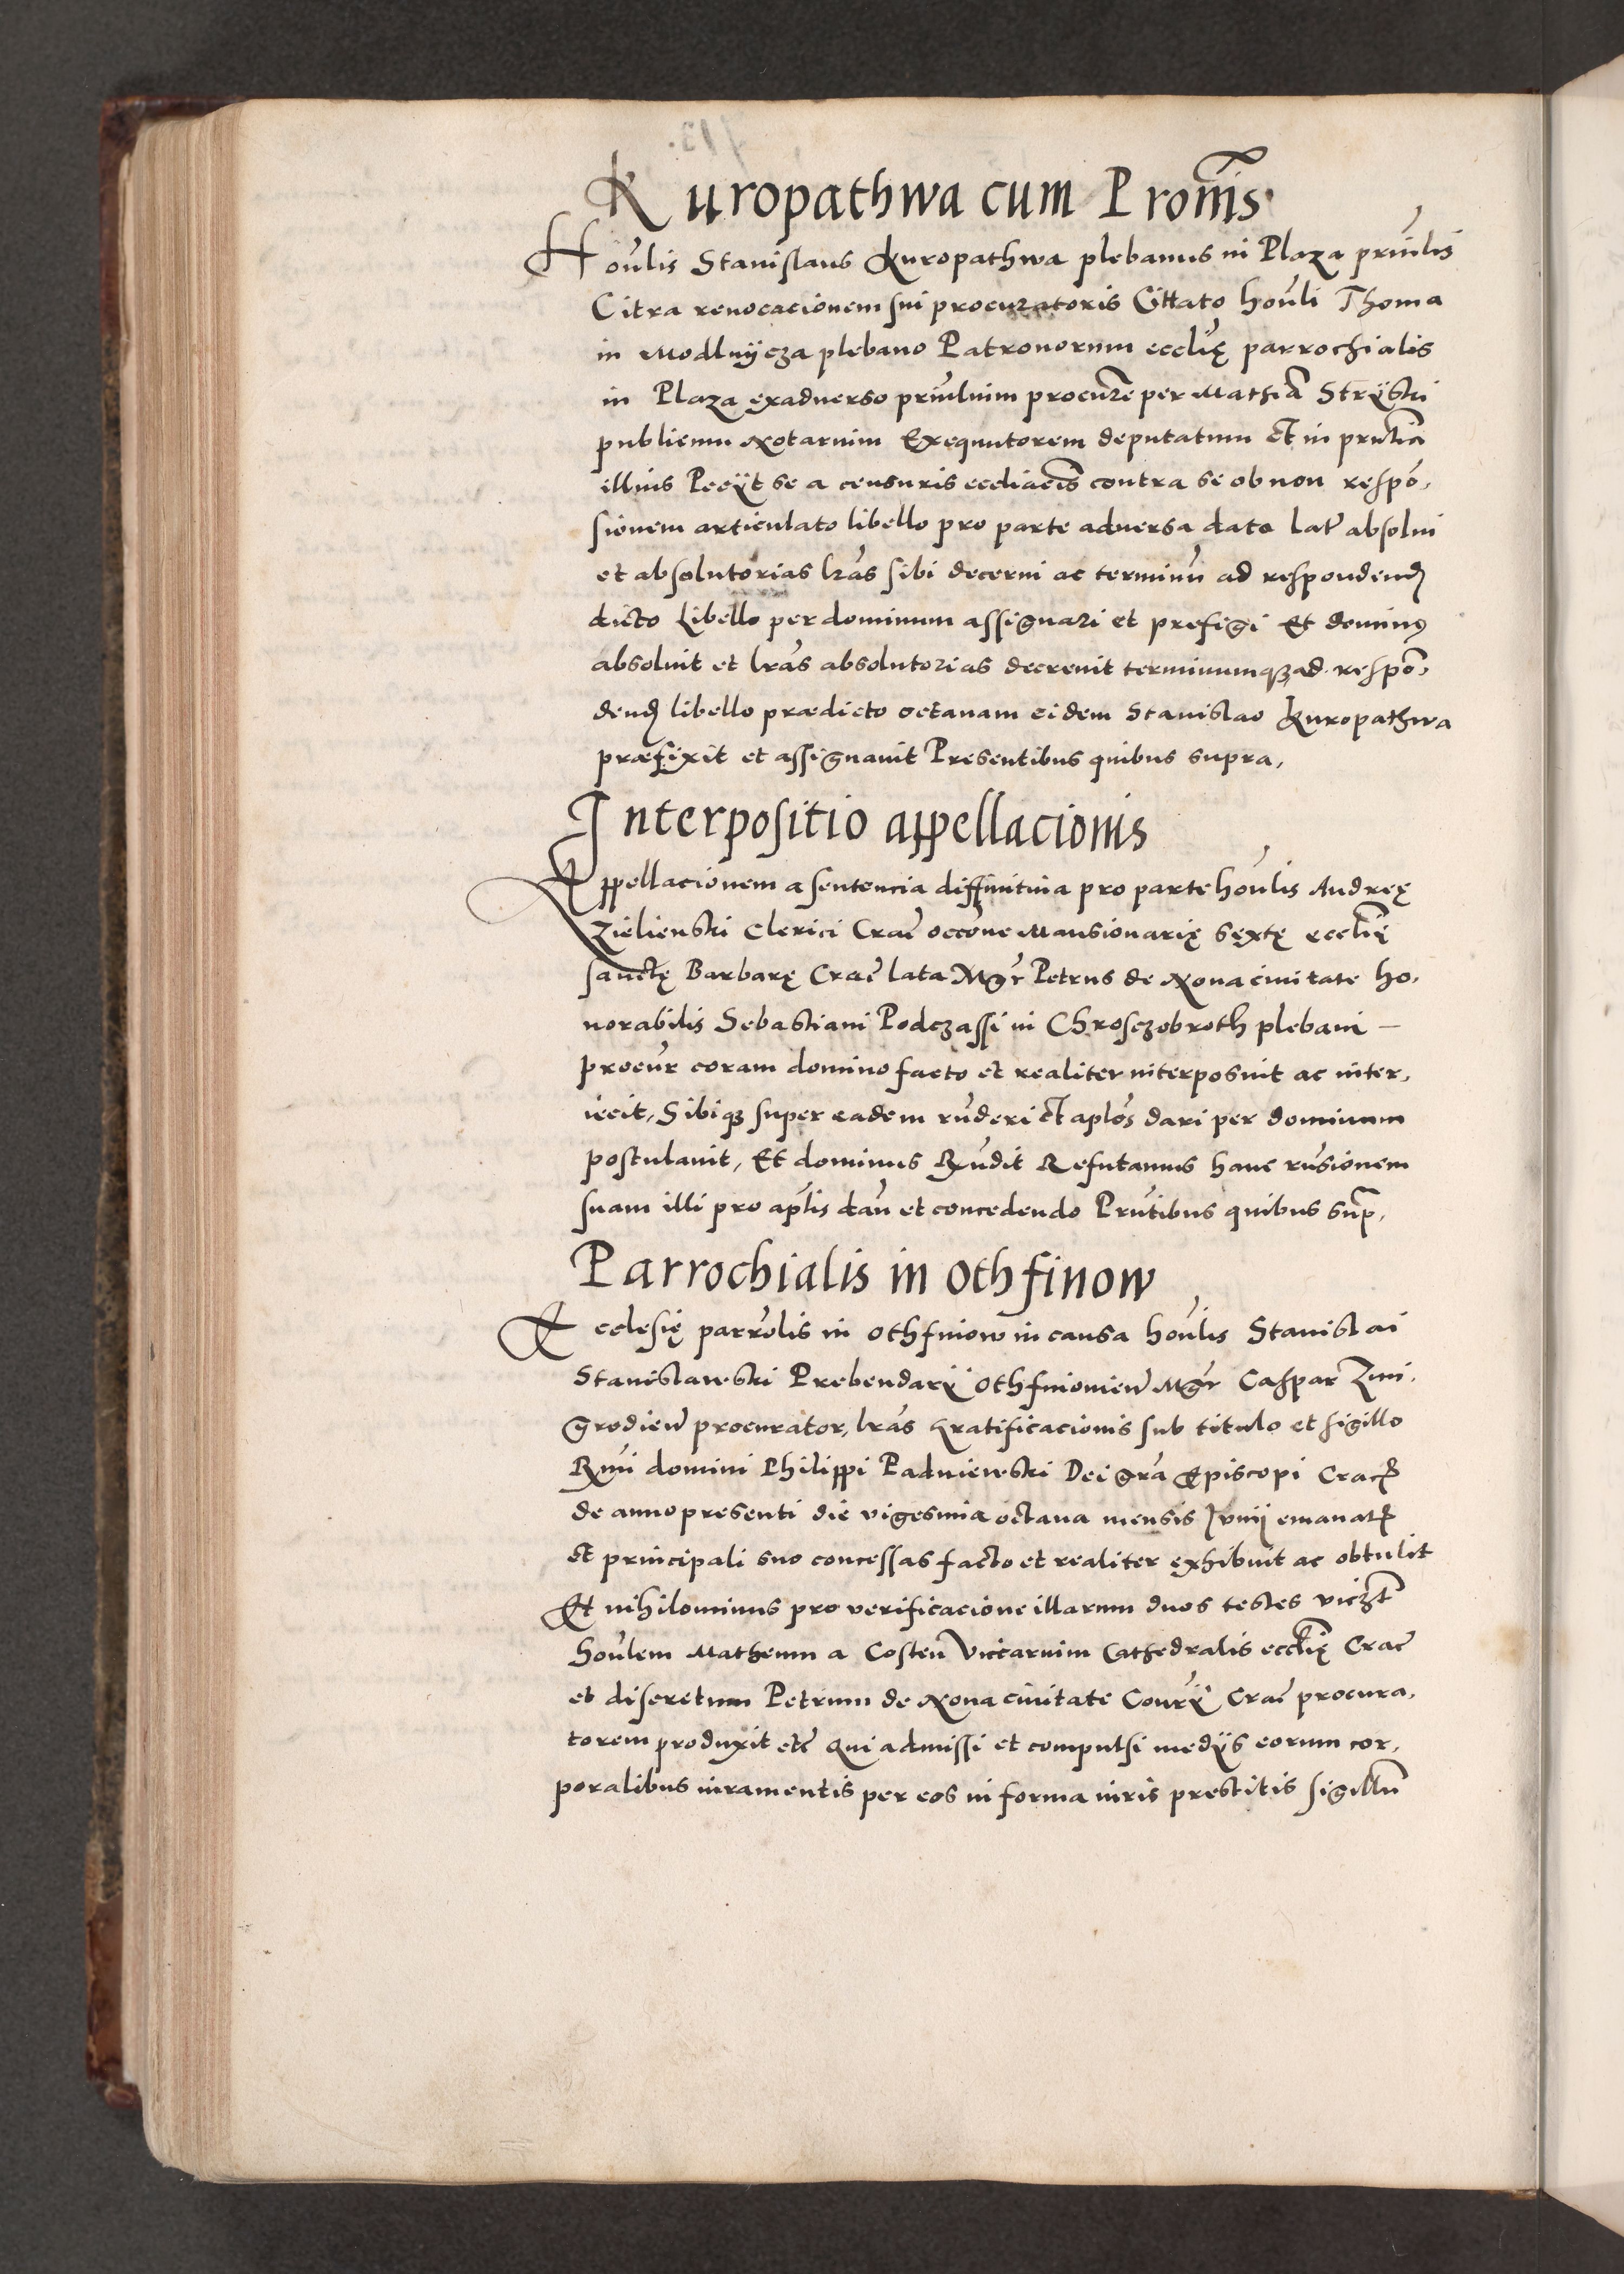 Kuropathwa cum Pronis
Honlis Stanislaus Kuropathwa plebanus in Plaza prinlis
Citra renocacionem sui procuratoris Cittato honli Thoma
in Modlnÿcza plebano Patronorum ecclię parrochialis
in Plaza exaduerso prinluim procure per Mathiã Strÿski
publicum Notarium Exequutorem deputatum et in pruncia
illius Pecÿt se a censuris eccliacis contra se ob non respõ,
sionem articulato libello pro parte aduersa dato Lat absolui
et absolutorias lras sibi decerni ac terminũ ad respondend
dicto Libello per dominum assignari et prefigi Et dominus
absoluit et lras absolutorias decreuit terminumqʒ ad respõ,
dend libello prædicto octauam eidem Stanislao Kuropathwa
præfixit et assignauit Presentibus quibus supra,
Interpositio appellacionis
Appellacionem a sentencia diffinitiua pro parte honlis Andreę
Zielienski Clerici Crac occone Mansionarię sextę ecclię
sanctę Barbarę Crac lata Mgr Petrus de Noua ciuitate ho,
norabilis Sebastiani Podczassi in Chrosczobroth plebani —
procur coram domino facto et realiter interposuit ac inter,
iecit, Sibiqʒ super eadem rnderi et aplos dari per dominum
postulauit, Et dominus Rndit Refutamus hanc rnsionem
suam illi pro aplis dan et concedendo Prntibus quibus supr,
Parrochialis in Othfinow
Ecclesię parrolis in Othfinow in causa honlis Stanislai
Stanislawski Prebendarÿ Othfinouien Mgr Caspar Zmi,
grodien procurator, lras gratificacionis sub titulo et sigillo
Rmi domini Philippi Padniewski Dei gra Episcopi Crac
de anno presenti die vigesima octaua mensis Junij emanat
et principali suo concessas facto et realiter exhibuit ac obtulit
Et nihilominus pro verificacione illarum duos testes viczt
honlem Matheum a Costen Viccarium Cathedralis ecclię Crac
et discretum Petrum de Noua ciuitate Conrÿ Crac procura,
torem produxit etc Qui admissi et compulsi medÿs eorum cor,
poralibus iuramentis per eos in forma iuris prestitis sigillũ